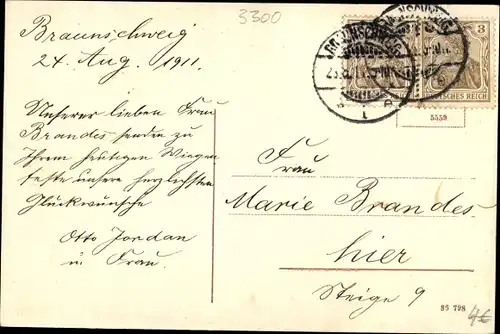 3300
Braunschweig
24. Aug. 1911.
Unserer lieben Frau
Brandes senden zu
Ihrem heutigen Wiegen
feste unsere herzlichsten
Glückwünsche
Otto Jordan
u. Frau.
BRAUNSCHWEIG
3
DEUTSCHES REICH
5559
Frau
Marie Brandes
hier
Steige 9
85 798
4€